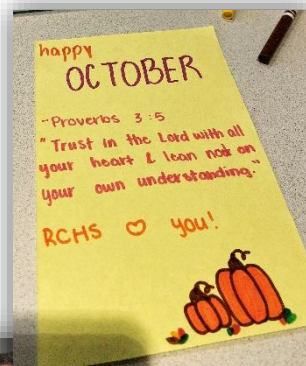 happy
OCTOBER
~Proverbs 3:5
"Trust in the Lord with all
your heart & lean not on
your own understanding."
RCHS ♡ you!